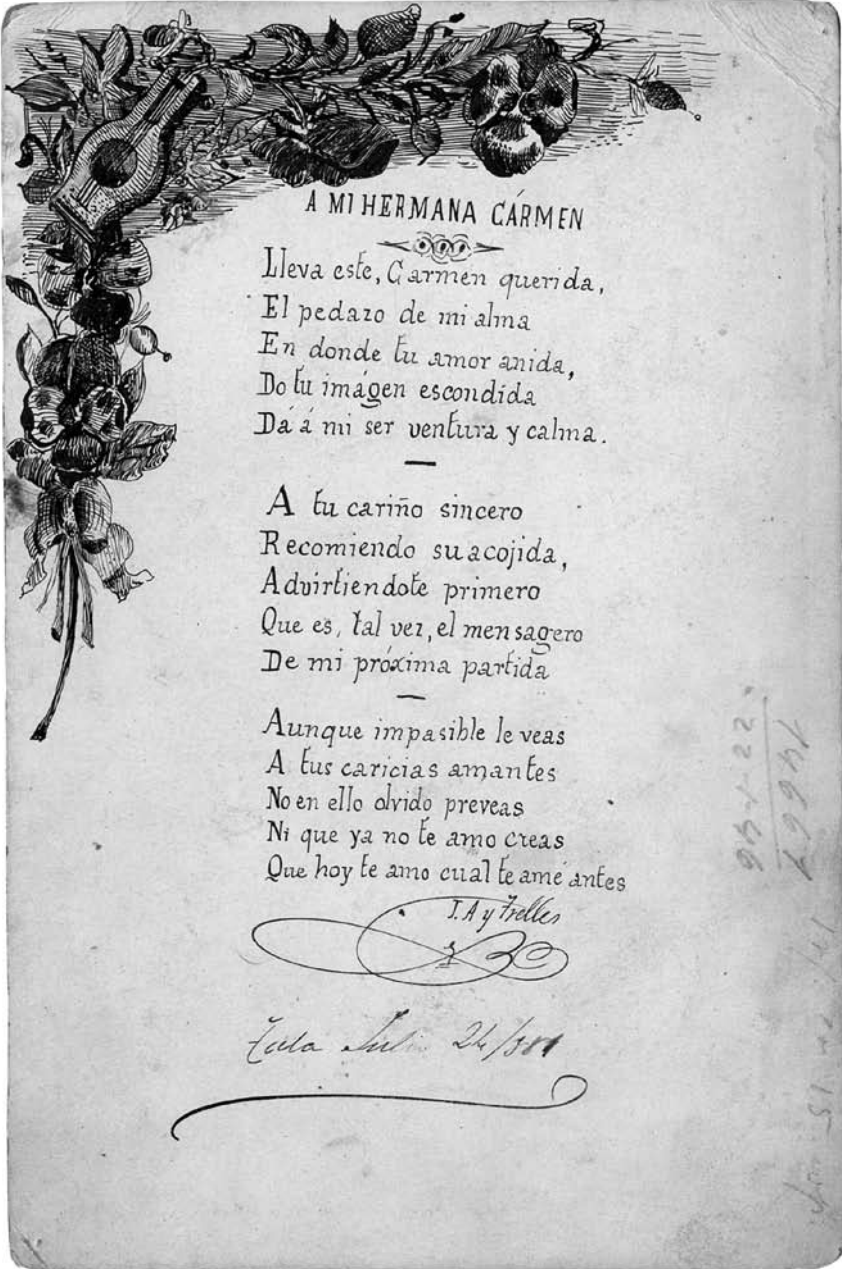 A MI HERMANA CÁRMEN
Lleva este, Carmen querida,
El pedazo de mi alma
En donde tu amor anida,
Do tu imágen escondida
Dá á mi ser ventura y calma.
A tu cariño sincero
Recomiendo su acojida,
Advirtiendote primero
Que es, tal vez, el mensagero
De mi próxima partida
Aunque impasible le veas
A tus caricias amantes
No en ello olvido preveas
Ni que ya no te amo creas
Que hoy te amo cual te amé antes
J. A y Trelles
Julio 24/881
93-1-22